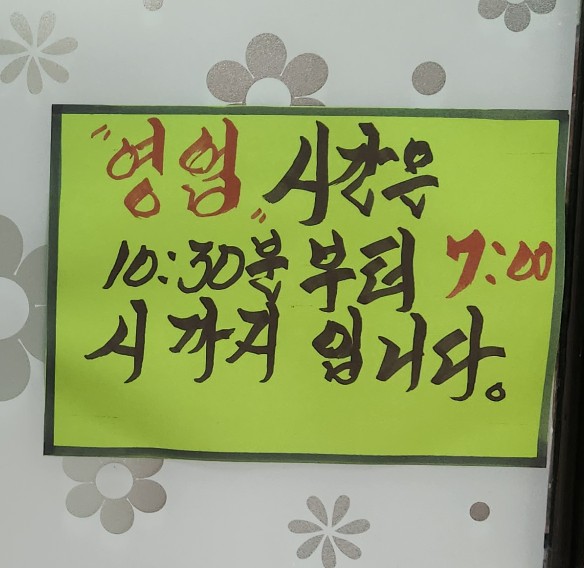 "영업" 시간은
10:30분 부터 7:00
시 까지 입니다.